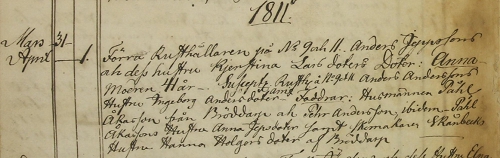 1811.
Mars 31 Förra Rusthållaren på No 9 och 11. Anders Jeppssons
April 1. och dess hustru Kjerstina Lars doters Doter: Anna
Moren Här. Suscepts Rusth. å No 9 & 11 Anders Anderssons
Hustru Ingeborg Anders doter. Faddrar: Husmännen Påhl
Åkasson från Bröddarp och Pehr Andersson, ibidem. Påhl
Åkassons Hustru Anna Jepsdoter samt skomakaren
Hustru Hanna Holgers doter af Bröddarp